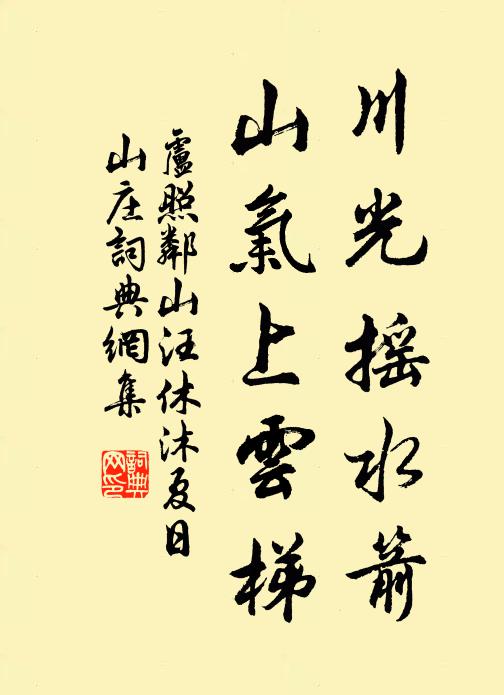 川光摇水箭
山氣上雲梯
盧照鄰山汪休沐夏日
山庄詞典網集
詞典
网印